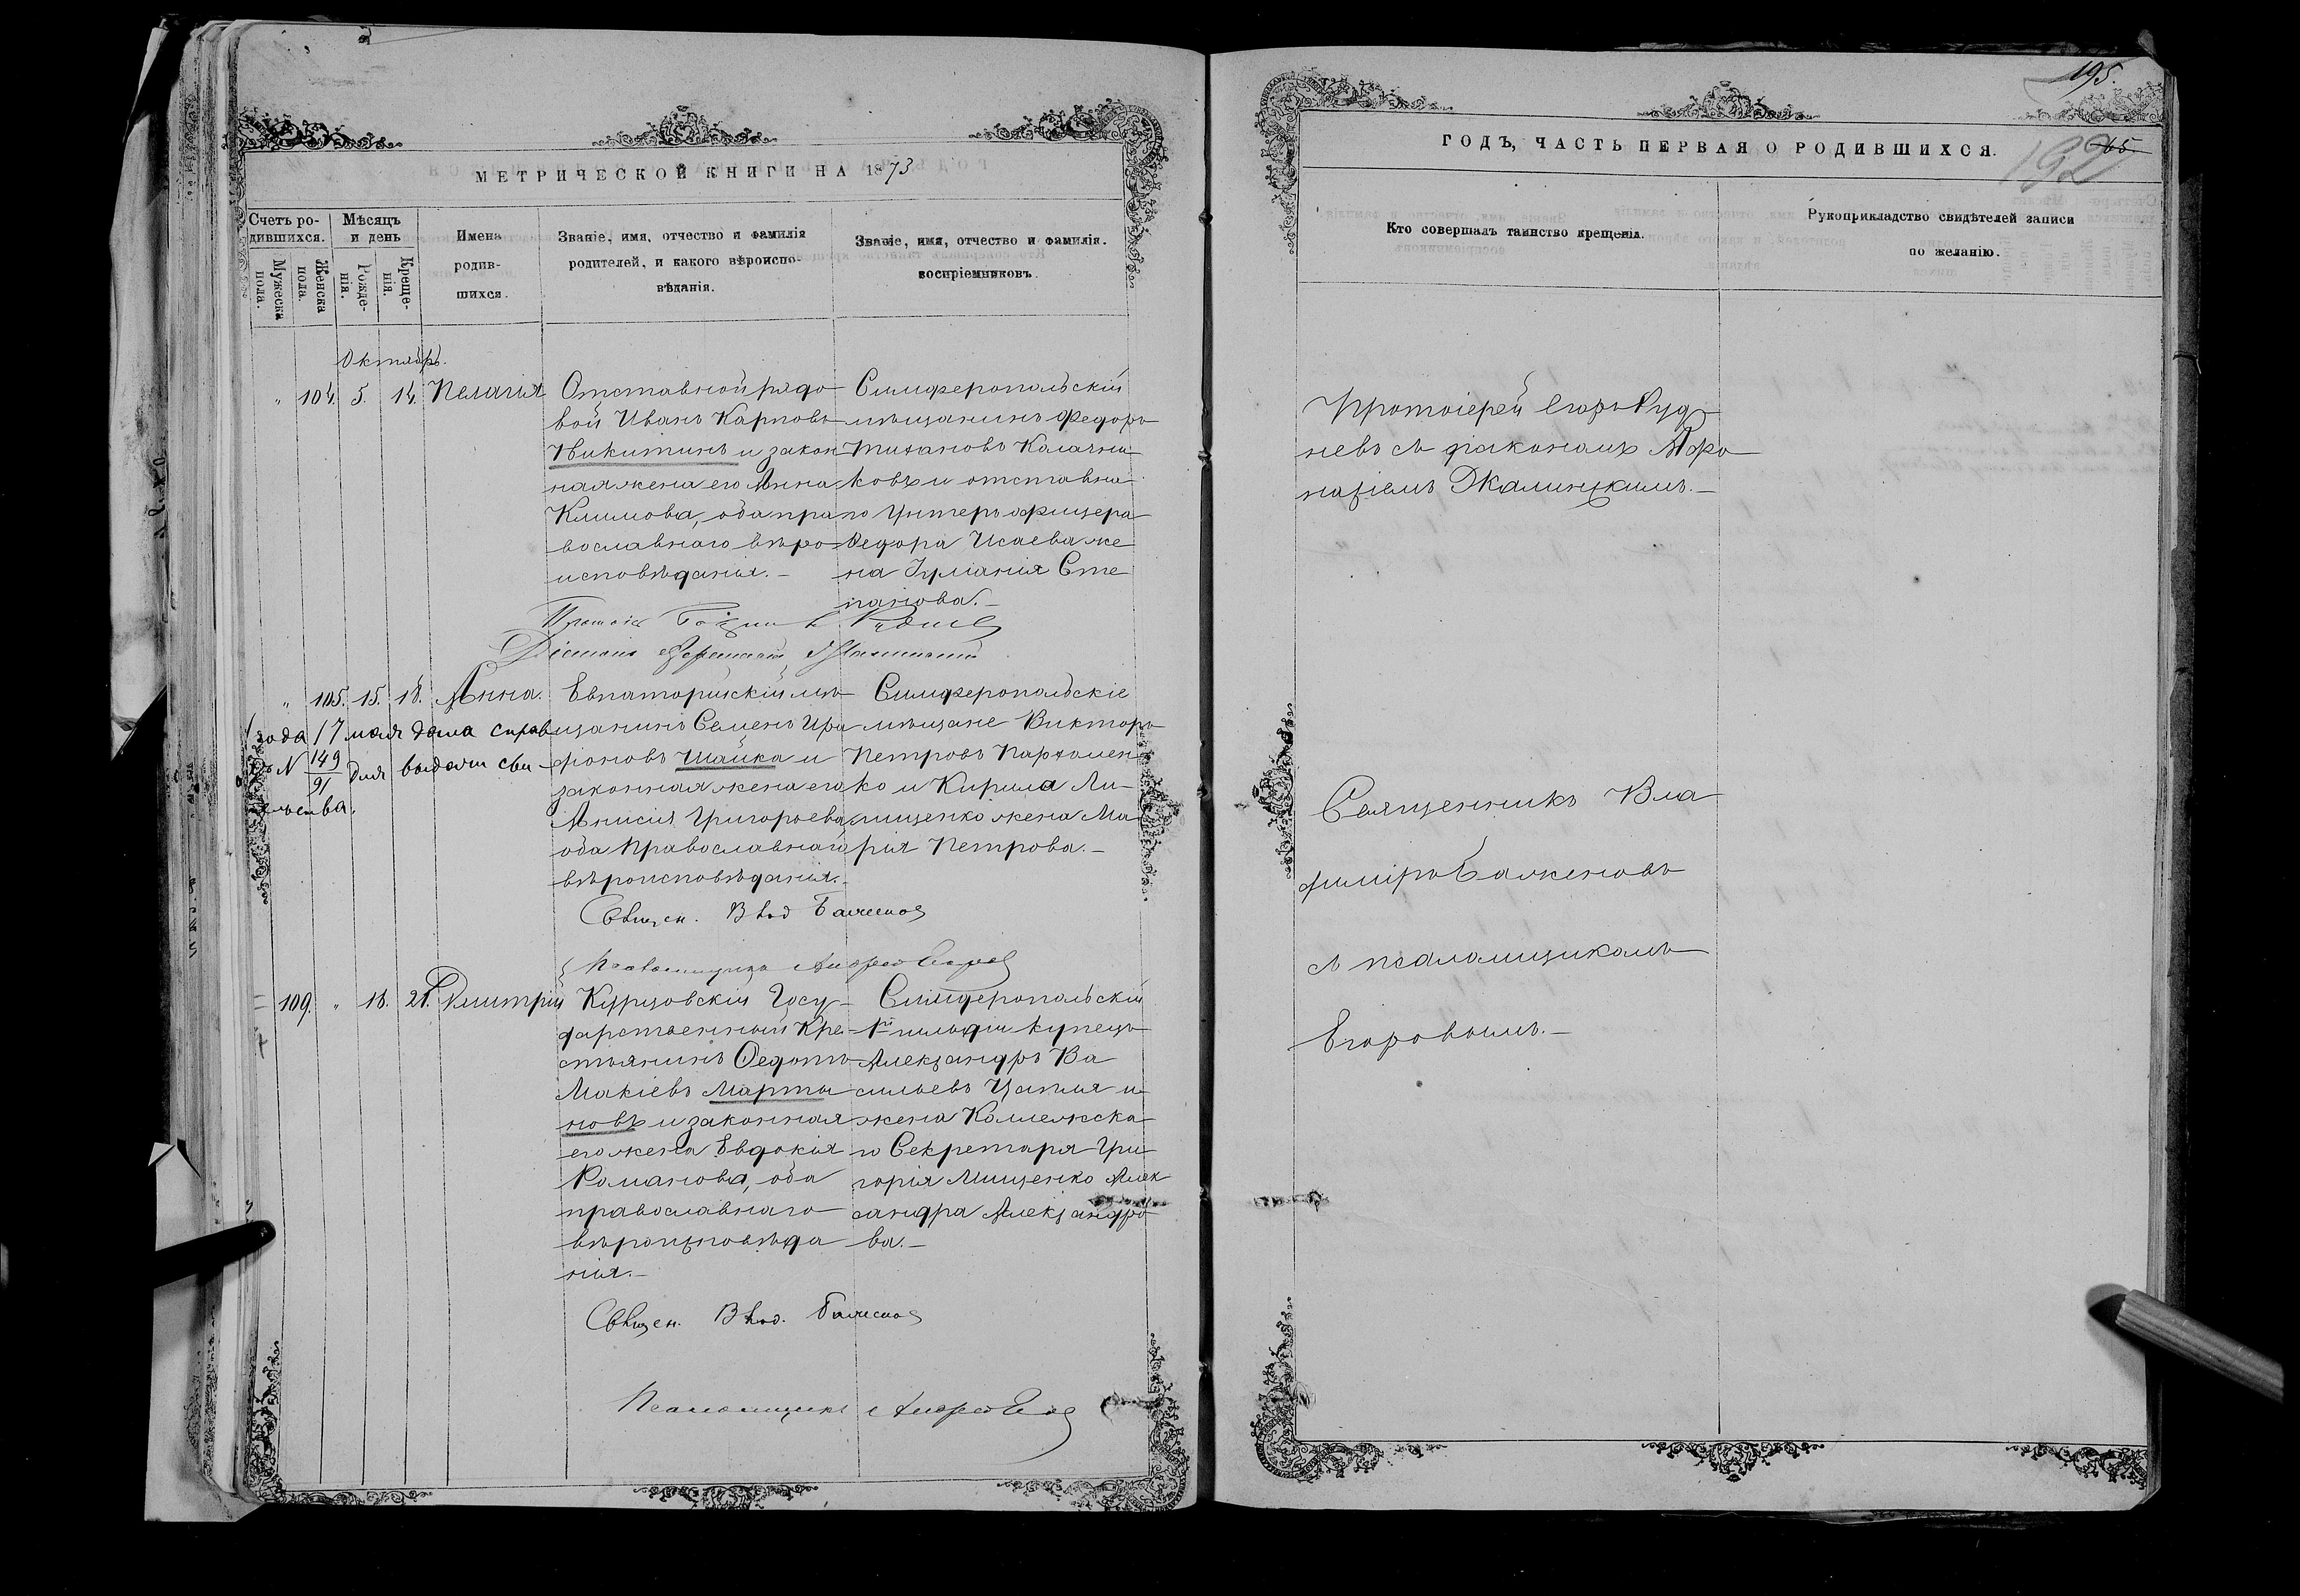 МЕТРИЧЕСКОЙ КНИГИ НА 1873
Счетъ ро-
дившихся.
Мужеска
пола.
Женска
пола.
Мѣсяцъ
и день
Рожде-
нія.
Креще-
нія.
Имена
родив-
шихся.
Званіе, имя, отчество и фамилія
родителей, и какого вѣроиспо-
вѣданія.
Званіе, имя, отчество и фамилія.
воспріемниковъ.
Октябрь.
" 104. 5. 14. Пелагія
Отставной рядо-
вой Иванъ Карповъ
Никитинъ и закон-
ная жена его Анна
Климова, оба пра-
вославнаго вѣро-
исповѣданія.-
Симферопольскій
мѣщанинъ Федоръ
Калачни-
ковъ и отставна-
го Унтеръ офицера
Ѳедора Исаева же-
на Іуліанія Сте-
панова.-
" 105. 15. 18. Анна.
Евпаторійскій мѣ-
щанинъ Семенъ
Шайка и
законная жена его
Анисія Григорьева,
оба Православнаго
вѣроисповѣданія.-
Симферопольскіе
мѣщане Викторъ
Петровъ Пархомен-
ко и Кирила Ли-
жена Ма-
рія Петрова.-
года 17 мая дана справ
№ 149
91
для выдачи сви-
Священ. Влад Баженов
109. " 18. 21. Димитрій
Курцовскій Госу-
дарственный Кре-
стьянинъ Ѳедотъ
Макіевъ Марты-
новъ и законная
его жена Евдокія
Романова, оба
православнаго
вѣроисповѣда-
нія.-
Симферопольскій
гильдіи купецъ
Александръ Ва-
сильевъ Цапля и
жена Коллежска-
го Секретаря Гри-
горія Мищенко Алек-
сандра Александро-
ва.-
Священ. Влад. Баженов
Псаломщикъ Андрей
ГОДЪ, ЧАСТЬ ПЕРВАЯ О РОДИВШИХСЯ.
195.
192
65
Кто совершалъ таинство крещенія.
Рукоприкладство свидѣтелей записи
по желанію.
Протоіерей Руд-
невъ съ діакономъ
Священникъ Вла-
диміръ Баженовъ
съ псаломщикомъ
Егоровымъ.-